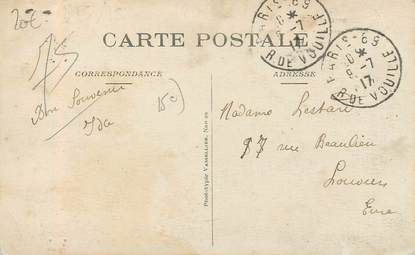 20€
CARTE POSTALE
CORRESPONDANCE
ADRESSE
PARIS-59
8-7
17
R. DE VOUILLÉ
PARIS-59
8-7
17
R. DE VOUILLÉ
Bon Souvenir
Ida
Madame Lestard
27 rue Beaulieu
Louviers
Eure
Phototypie Vassellier, Nantes